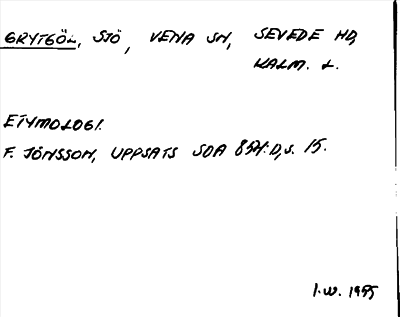 GRYTGÖL, SJÖ, VENA SN, SEVEDE HD,
KALM. L.
ETYMOLOGI.
F. JÖNSSON, UPPSATS SOA 854:D, S. 15.
I.W. 1995